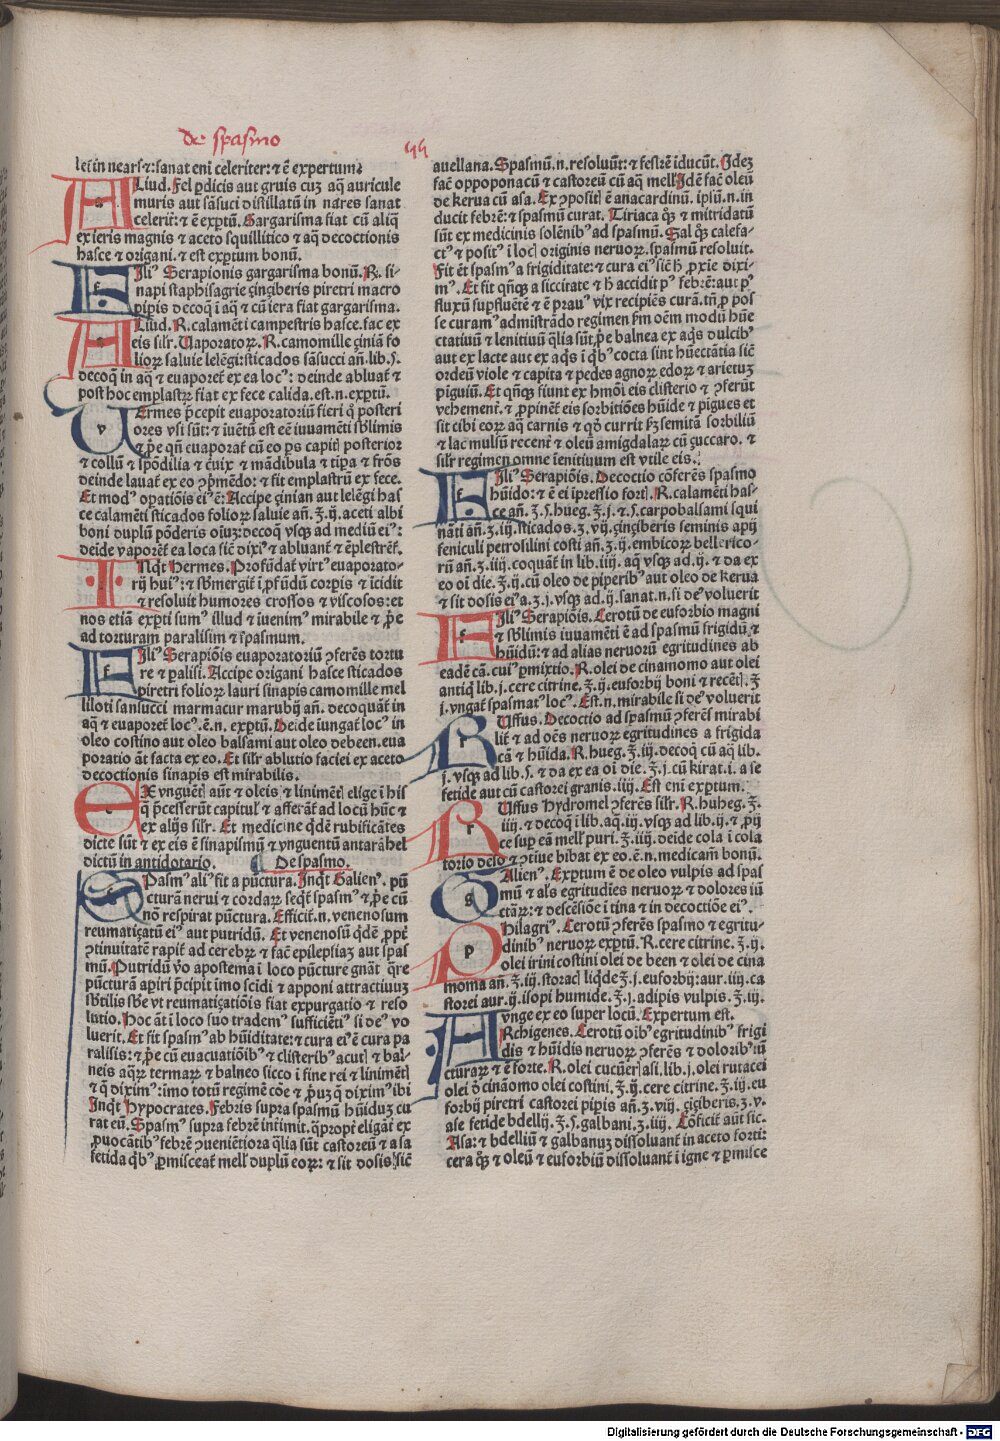 de spasmo
lei in nearsꝛ: sanat eni celeriter: ꞇ ē expertum
ALiud. Fel ꝑdicis aut gruis cuʒ aq̄ auricule
muris aut sāsuci distillatū in nares sanat
celeriť: ꞇ ē exꝑtū. Gargarisma fiat cū aliq̄
ex ieris magnis ꞇ aceto squillitico ꞇ aq̄ decoctionis
hasce ꞇ origani. ꞇ est exꝑtum bonū.
FIliꝰ Serapionis gargarisma bonū. R. si-
napi staphisagrie çingiberis piretri macro
pipis decoq̄ i aq̄ ꞇ cū iera fiat gargarisma.
ALiud. R. calamēti campestris hasce. fac ex
eis silr. Vaporatoꝝ. R. camomille çiniā fo
lioꝝ saluie lelēgi: sticados sāsucci añ. lib. s.
decoq̄ in aq̄ ꞇ euaporeť ex ea locꝰ: deinde abluať ꞇ
post hoc emplastrꝫ fiat ex fece calida. est. n. exꝑtū.
VErmes p̄cepit euaporatoriū fieri q̄ posteri
ores vsi sūt: ꞇ iuētū est eē iuuamēti sblimis
ꞇ p̄e qn̄ euaporať cū eo ps capitꝭ posterior
ꞇ collū ꞇ spōdilia ꞇ ceruix ꞇ mādibula ꞇ tīpa ꞇ frōs
deinde lauať ex eo ꝯp̄mēdo: ꞇ fit emplastrū ex fece.
Et modꝰ oꝑatiōis eiꝰ ē: Accipe çinian aut lelēgi has
ce calamēti sticados folioꝝ saluie añ. ʒ. ij. aceti albi
boni duplū pōderis oīuʒ: decoq̄ vsqꝫ ad mediū eiꝰ:
deide vaporēť ea loca sicē dixi ꞇ abluanť ꞇ ēplestrēť.
INqť Hermes. Profūdať virtꝰ euaporato-
rij huiꝰ: ꞇ sbmergiť i ꝓfūdū corꝑis ꞇ icidit
ꞇ resoluit humores crossos ꞇ viscosos: et
nos etiā exꝑti sumꝰ illud ꞇ iuenimꝰ mirabile ꞇ p̄e
ad torturam paralisim ꞇ spasmum.
FIliꝰ Serapiōis euaporatoriū ꝯferēs tortu
re ꞇ palisi. Accipe origani hasce sticados
piretri folioꝝ lauri sinapis camomille mel
liloti sansucci marmacur marubij añ. decoquāť in
aq̄ ꞇ euaporeť locꝰ. ē. n. exꝑtū. Deide iungať locꝰ in
oleo costino aut oleo balsami aut oleo debeen. eua
poratio āt facta ex eo. Et silr ablutio faciei ex aceto
decoctionis sinapis est mirabilis.
EX vnguētꝭ aūt ꞇ oleis ꞇ linimētꝭ elige i his
q̄ p̄cesserūt capitulꝰ ꞇ afferāť ad locū hūc ꞇ
ex alijs silr. Et medicine q̄dē rubificātes
dicte sūt ꞇ ex eis ē sinapismꝰ ꞇ vnguentū antarāhel
dictū in antidotario. De spasmo.
SPasmꝰ aliꝰ fit a pūctura. Inqť Galienꝰ. pū
cturā nerui ꞇ cordaꝝ seqť spasmꝰ ꞇ p̄e cū
nō respirat pūctura. Efficiť. n. venenosum
reumatiçatū eiꝰ aut putridū. Et venenosū q̄dē ꝓpť
ꝯtinuitatē rapiť ad cerebrꝫ ꞇ facē epilepsiaʒ aut spas
mū. Putridū vo apostema i loco pūcture gnāt q̄re
pūcturā aꝑiri p̄cipit imo scidi ꞇ apponi attractiuuʒ
sbtilis sbe vt reumatiçatiōis fiat expurgatio ꞇ reso
lutio. Hoc āt i loco suo trademꝰ sufficiētꝰ si deꝰ vo
luerit. Et fit spasmꝰ ab hūiditate: ꞇ cura eiꝰ ē cura pa
ralisis: ꞇ p̄e cū euacuatiōibꝰ ꞇ clisteribꝰ acutꝭ ꞇ bal-
neis aqꝝ termaꝝ ꞇ balneo sicco i fine rei ꞇ linimētꝭ
ꞇ q̄ diximꝰ: imo totū regimē cōe ꞇ p̄uʒ q̄ diximꝰ ibi
Inqť Hypocrates. Febris supra spasmū hūiduʒ cu
rat eū. Spasmꝰ supra febrē intimiť. q̄ꝓpť eligať ex
ꝓuocātibꝰ febrē ꝯueniētiora q̄lia sūt castoreū ꞇ asa
fetida q̄bꝰ ꝓmisceať mellꝭ duplū eoꝝ: ꞇ sit dosis sicē
avellana. Spasmū. n. resoluūt: ꞇ febrē iducūt. Ideʒ
facē oppoponacū ꞇ castoreū cū aq̄ mellꝭ Idē facē oleū
de kerua cū asa. Ex ꝯpositꝭ ē anacardinū. ipsū. n. in
ducit febrē: ꞇ spasmū curat. Tiriaca qꝫ ꞇ mitridatū
sūt ex medicinis solēnibꝰ ad spasmū. Sal qꝫ calefa-
ctꝰ ꞇ positꝰ i locꝭ originis neruoꝝ. spasmū resoluit.
Fit ēt spasmꝰ a frigiditate: ꞇ cura eiꝰ sicē h̄ ꝓxie dixi-
mꝰ. Et fit qn̄qꝫ a siccitate ꞇ h̄ accidit pꝰ febrē: aut pꝰ
fluxū suꝑfluētē ꞇ ē prauꝰ vix recipiēs curā. tn̄ p pos
se curamꝰ admistrādo regimen fm oēm modū hūe
ctatiuū ꞇ lenitiuū q̄lia sūt p̄e balnea ex aqs dulcibꝰ
aut ex lacte aut ex aqs i q̄bꝰ cocta sint hūectātia sicē
ordeū viole ꞇ capita ꞇ pedes agnoꝝ edoꝝ ꞇ arietuʒ
piguiū. Et qn̄qꝫ fiunt ex hmōi eis clisteria ꞇ ꝯferūt
vehementꝰ. ꞇ ꝓpinēť eis sorbitiōes hūide ꞇ pigues et
sit cibi eoꝝ aq̄ carnis ꞇ qd currit fꝫ semitā sorbiliū
ꞇ lac mulsū recenť ꞇ oleū amigdalaꝝ cū çuccaro. ꞇ
silr regimen omne lenitiuum est vtile eis.
FIliꝰ Serapiōis. Decoctio cōferēs spasmo
hūido: ꞇ ē ei ipressio fortꝭ. R. calamēti has-
ce añ. ʒ. s. hueg. ʒ. j. ꞇ. s. carpobalsami squi
nāti añ. ʒ. iij. sticados. ʒ. vij. çingiberis seminis apij
feniculi petrosilini costi añ. ʒ. ij. embicoꝝ bellerico-
rū añ. ʒ. iiij. coquāť in lib. iiij. aq̄ vsqꝫ ad. ij. ꞇ da ex
eo oi die. ʒ. ij. cū oleo de piperibꝰ aut oleo de kerua
ꞇ sit dosis eiꝰ a. ʒ. j. vsqꝫ ad. ij. sanat. n. si deꝰ voluerit
FIliꝰ Serapiōis. Cerotū de euforbio magni
ꞇ sblimis iuuamēti ē ad spasmū frigidū ꞇ
hūidū: ꞇ ad alias neruorū egritudines ab
eadē cā. cuiꝰ ꝑmixtio. R. olei de cinamomo aut olei
antiq̄ lib. j. cere citrine. ʒ. ij. euforbij boni ꞇ recētꝭ. ʒ
j. vngať spasmatꝰ locꝰ. Est. n. mirabile si deꝰ voluerit
RUffus. Decoctio ad spasmū ꝯferēs mirabi
liť ꞇ ad oēs neruoꝝ egritudines a frigida
cā ꞇ hūida. R. hueg. ʒ. iij. decoq̄ cū aq̄ lib.
j. vsqꝫ ad lib. s. ꞇ da ex ea oi die. ʒ. j. cū kirat. i. a se
fetide aut cū castorei granis. iiij. Est eni exꝑtum.
RUffus Hydromel ꝯferēs silr. R. huheg. ʒ.
iiij. ꞇ decoq̄ i lib. aq̄. iij. vsqꝫ ad lib. ij. ꞇ ꝓij
ce sup eā mellꝭ puri. ʒ. iij. deide cola i cola
torio dēso ꞇ ꝯtiue bibat ex eo. ē. n. medicam̄ bonū.
GAlienꝰ. Exꝑtum ē de oleo vulpis ad spas
mū ꞇ als egritudies neruoꝝ ꞇ dolores iū
ctāꝝ: ꞇ descēsiōe i tina ꞇ in decoctiōe eiꝰ.
PHilagriꝰ. Cerotū ꝯferēs spasmo ꞇ egritu-
dinibꝰ neruoꝝ exꝑtū. R. cere citrine. ʒ. ij.
olei irini costini olei de been ꞇ olei de cina
moma añ. ʒ. iij. storacꝭ liq̄de ʒ. j. euforbij: aur. iiij. ca
storei aur. ij. isopi humide. ʒ. j. adipis vulpis. ʒ. iij.
vnge ex eo super locū. Expertum est.
ARchigenes. Cerotū oibꝰ egritudinibꝰ frigi
dis ꞇ hūidis neruoꝝ ꝯferēs ꞇ doloribꝰ iū
cturaꝝ ꞇ ē forte. R. olei cucūerꝭ asi. lib. j. olei rutacei
olei d cināomo olei costini. ʒ. ij. cere citrine. ʒ. iij. eu
forbij piretri castorei pipis añ. ʒ. viij. çigiberis. ʒ. v.
ase fetide bdellij. ʒ. s. galbani. ʒ. iij. Cōficiť aūt sic.
Asa: ꞇ bdelliū ꞇ galbanuʒ dissoluanť in aceto forti:
cera qꝫ ꞇ oleū ꞇ euforbiū dissoluanť i igne ꞇ ꝑmisce
Digitalisierung gefördert durch die Deutsche Forschungsgemeinschaft - DFG